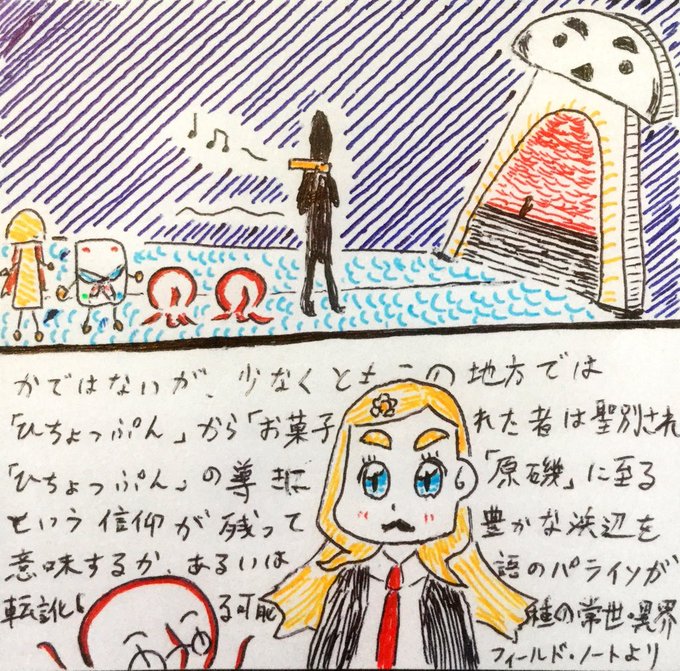 かではないが、少なくともこの地方では
「ひちょっぷん」から「お菓子 れた者は聖別され
「ひちょっぷん」の導きに 「原磯」に至る
という信仰が残って 豊かな浜辺を
意味するか、あるいは 語のパライソが
転訛し る可能 の常世・異界
フィールド・ノートより